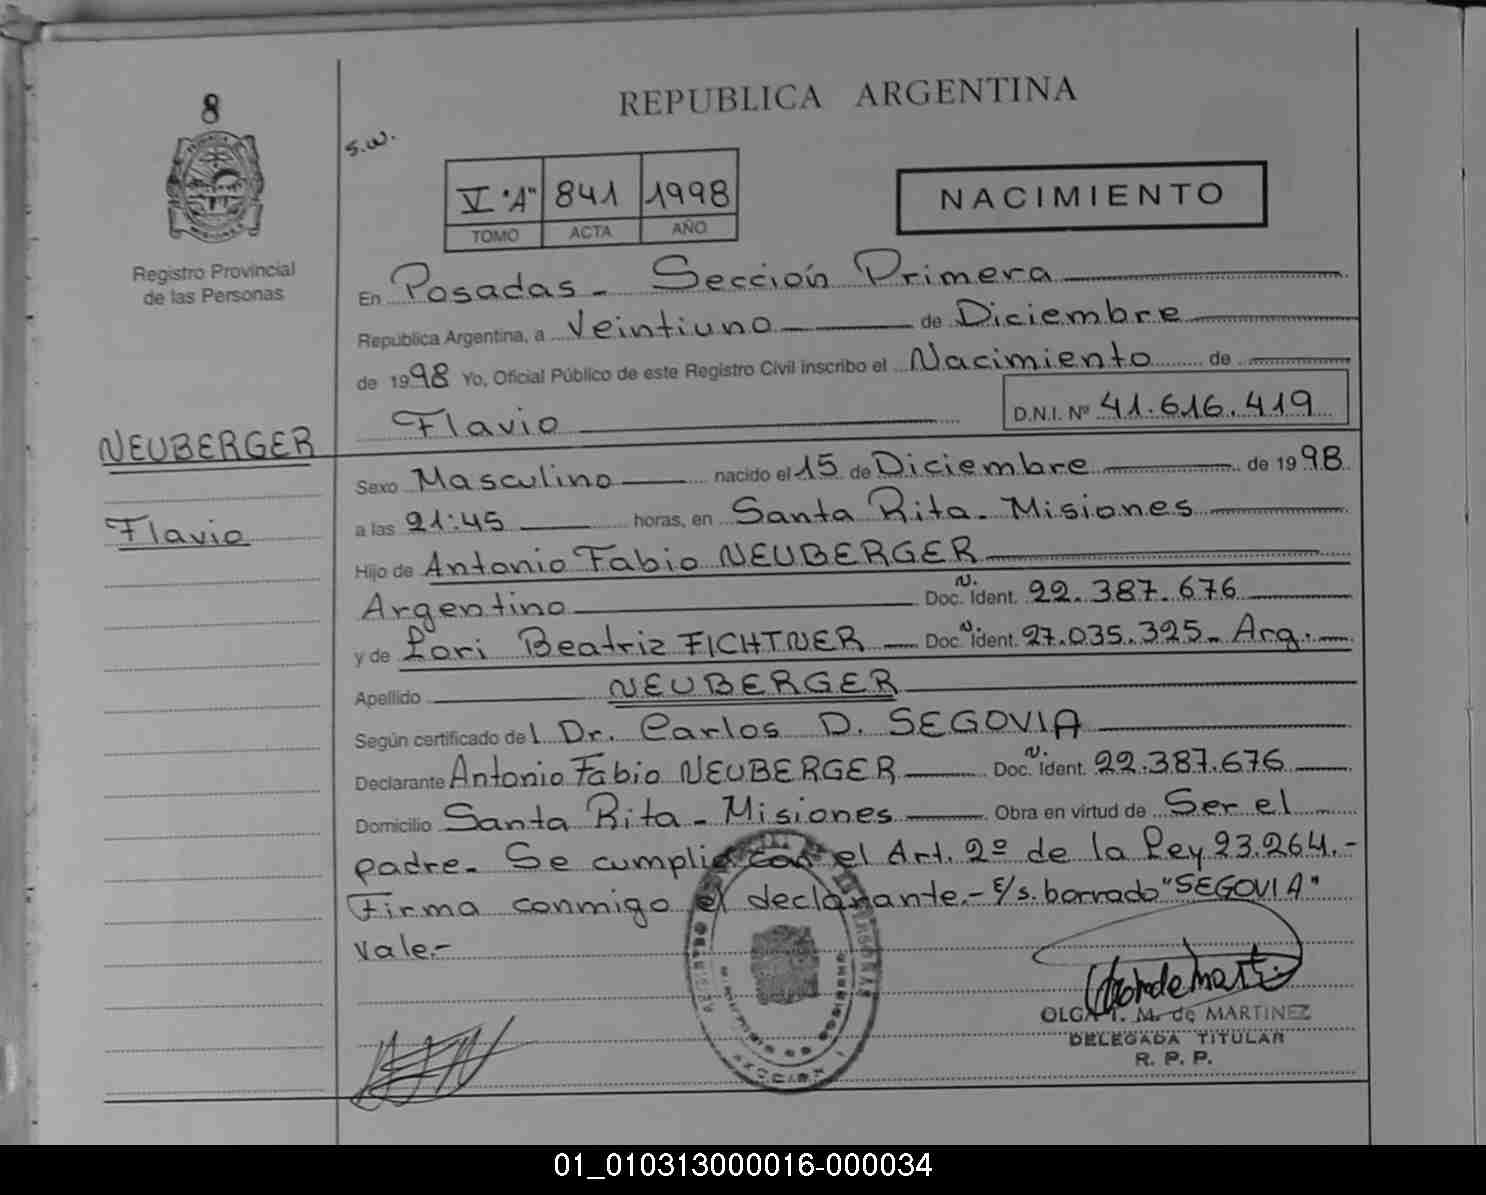 8
REPUBLICA ARGENTINA
s.w.
V "A" 841 1998
TOMO ACTA AÑO
NACIMIENTO
Registro Provincial
de las Personas
En Posadas - Sección Primera
República Argentina, a Veintiuno de Diciembre
de 1998 Yo, Oficial Público de este Registro Civil inscribo el Nacimiento de
Flavio D.N.I. Nº 41.616.419
NEUBERGER
Flavio
Sexo Masculino nacido el 15 de Diciembre de 1998
a las 21:45 horas, en Santa Rita - Misiones
Hijo de Antonio Fabio NEUBERGER
Argentino Doc. N. Ident. 22.387.676
y de Lori Beatriz FICHTNER Doc. N. Ident. 27.035.325 - Arg.
Apellido NEUBERGER
Según certificado del Dr. Carlos D. SEGOVIA
Declarante Antonio Fabio NEUBERGER Doc. N. Ident. 22.387.676
Domicilio Santa Rita - Misiones Obra en virtud de Ser el
padre. Se cumplió con el Art. 2º de la Ley 23.264.-
Firma conmigo el declarante.- E/s. borrado "SEGOVIA"
Vale.-
OLGA T. M. de MARTINEZ
DELEGADA TITULAR
R. P. P.
01_010313000016-000034